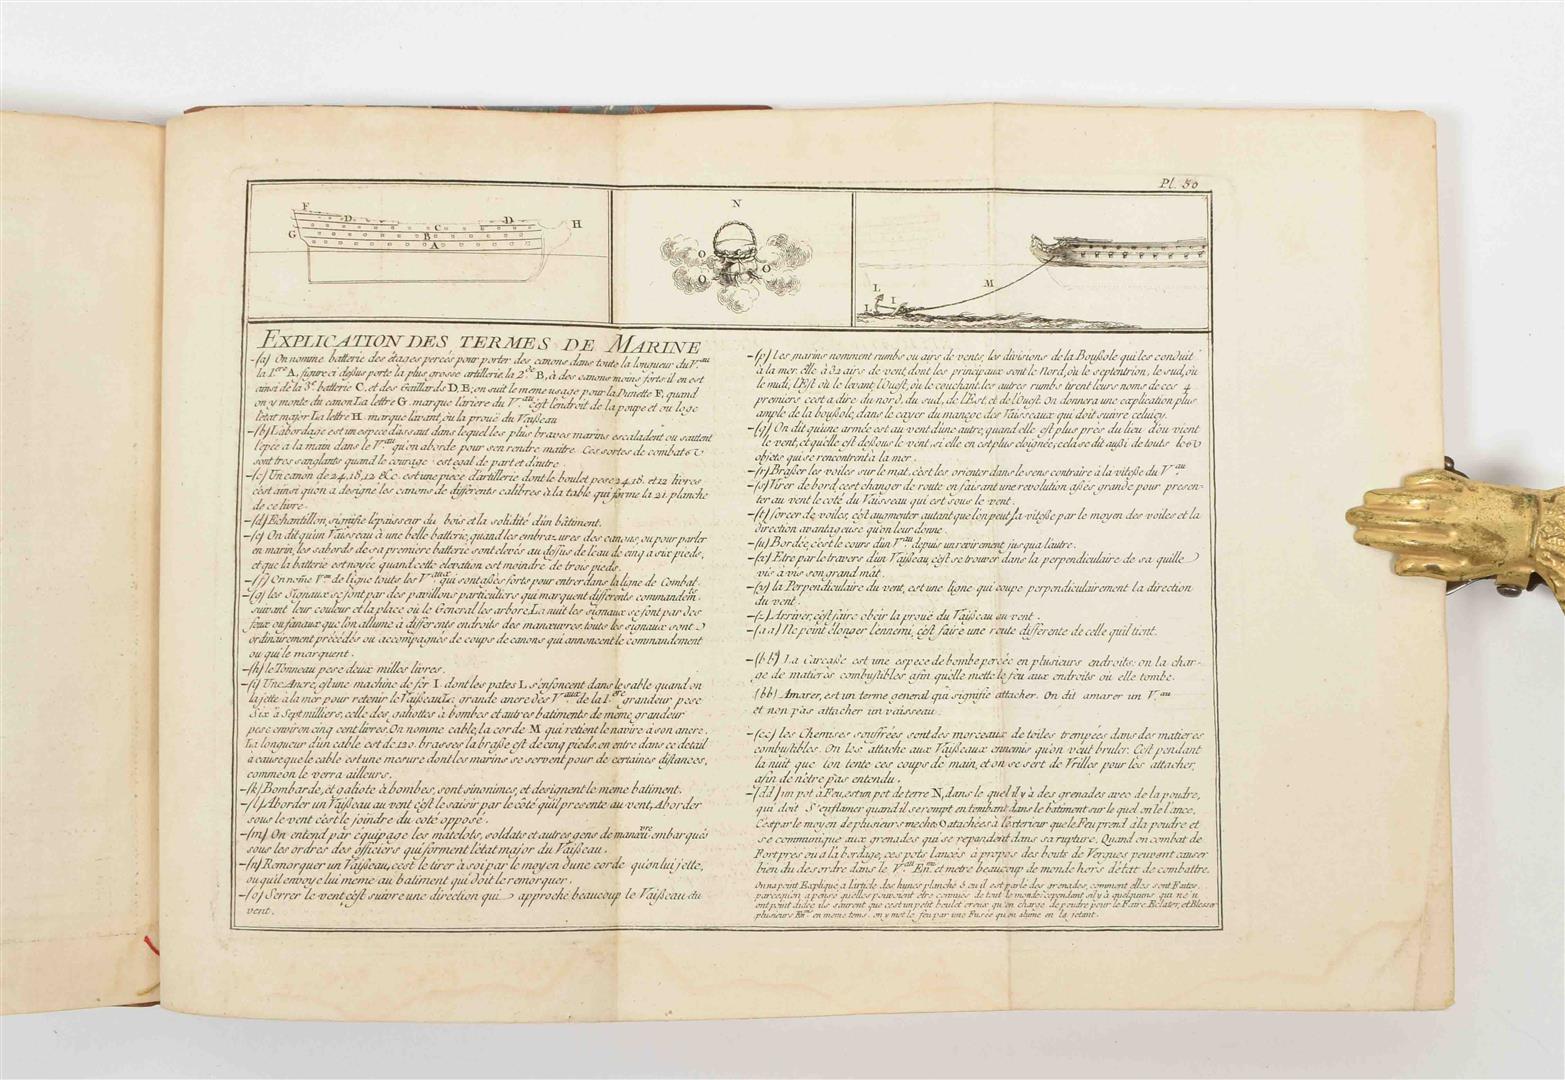 Pl. 50
F D D H
G C
B
A
N
O O
O
M
L I
L
EXPLICATION DES TERMES DE MARINE
-(a) On nomme batterie des étages percés pour porter des canons dans toute la longueur du V.au
la 1ere A, figure ci dessus porte la plus grosse artillerie. la 2.de B, à des canons moins forts il en est
ainsi de la 3.e batterie C, et des Gaillards D, D; on suit le meme usage pour la Dunette F, quand
on y monte du canon La lettre G. marque l'ariere du V.au c'est l'endroit de la poupe et ou loge
l'etat major La lettre H. marque l'avant, ou la prouë du Vaisseau
-(b) L'abordage est un espece d'assaut dans lequel les plus braves marins escaladent ou sautent
l'epée a la main dans le V.au qu'on aborde pour s'en rendre maitre. Ces sortes de combats
sont tres sanglants quand le courage est egal de part et d'autre.
-(c) Un canon de 24, 18, 12 &c. est une piece d'artillerie dont le boulet pese 24. 18. et 12 livres
c'est ainsi qu'on a designé les canons de differents calibres à la table qui forme la 21. planche
de ce livre.
-(d) Echantillon, signifie l'epaisseur du bois et la solidité d'un bâtiment.
-(e) On dit qu'un Vaisseau à une belle batterie, quand les embrazures des canons, ou pour parler
en marin, les sabords de sa premiere batterie sont elevés au dessus de l'eau de cinq a six pieds,
et que la batterie est noyée quand cette elevation est moindre de trois pieds.
-(f) On nome V.x de ligne touts les V.aux qui sont assés forts pour entrer dans la ligne de Combat.
-(g) les Signaux se font par des pavillons particuliers qui marquent differents commandem.ts
suivant leur couleur et la place où le General les arbore. La nuit les signaux se font par des
feux ou fanaux que l'on allume à differents endroits des manœuvres, touts les signaux sont
ordinairement précédés ou accompagnés de coups de canons qui annoncent le commandement
ou qui le marquent.
-(h) le Tonneau pese deux milles livres.
-(i) Une Ancre, est une machine de fer I. dont les pates L s'enfoncent dans le sable quand on
la jette à la mer pour retenir le Vaisseau. La grande ancre des V.aux de la 1.ere grandeur pese
Six à Sept milliers, celle des galiottes à bombes et autres batiments de meme grandeur
pese environ cinq cent livres. On nomme cable, la corde M qui retient le navire à son ancre.
La longueur d'un cable est de 120. brasses la brasse est de cinq pieds, on entre dans ce detail
à cause que le cable est une mesure dont les marins se servent pour de certaines distances,
comme on le verra ailleurs.
-(k) Bombarde, et galiote à bombes, sont sinonimes, et designent le meme batiment.
-(l) Aborder un Vaisseau au vent c'est le saisir par le coté qu'il presente au vent, Aborder
sous le vent c'est le joindre du coté opposé.
-(m) On entend par équipage les matelots, soldats et autres gens de manœu.vre embarqués
sous les ordres des officiers qui forment l'etat major du Vaisseau.
-(n) Remorquer un Vaisseau, c'est le tirer à soi par le moyen d'une corde qu'on lui jette,
ou qu'il envoye lui meme au batiment qui doit le remorquer.
-(o) Serrer le vent c'est suivre une direction qui approche beaucoup le Vaisseau du
vent.
-(p) Les marins nomment rumbs ou airs de vents, les divisions de la Boussole qui les conduit
à la mer. elle à 32 airs de vent, dont les principaux sont le Nord, où le septentrion, le sud, où
le midi, l'Est où le levant, l'Ouest, où le couchant. les autres rumbs tirent leurs noms de ces 4
premiers c'est a dire du nord, du sud, de l'Est, et de l'Ouest. On donnera une explication plus
ample de la boussole, dans le cayer du manége des Vaisseaux qui doit suivre celuicy.
-(q) On dit qu'une armée est au vent d'une autre, quand elle est plus prés du lieu d'ou vient
le vent, et qu'elle est dessous le vent, si elle en est plus eloignée, cela se dit aussi de touts les
objets qui se rencontrent à la mer.
-(r) Brasser les voiles sur le mat, c'est les orienter dans le sens contraire à la vitesse du V.au
-(s) Virer de bord, c'est changer de route en faisant une revolution assés grande pour presen-
ter au vent le coté du Vaisseau qui est sous le vent.
-(t) forcer de voiles, c'est augmenter autant que l'on peut, la vitesse par le moyen des voiles et la
direction avantageuse qu'on leur donne.
-(u) Bordée, c'est le cours d'un V.au depuis un revirement jusqu'a l'autre.
-(x) Etre par le travers d'un Vaisseau, c'est se trouver dans la perpendiculaire de sa quille
vis à vis son grand mât.
-(y) la Perpendiculaire du vent, est une ligne qui coupe perpendiculairement la direction
du vent.
-(z) Arriver, c'est faire obeir la prouë du Vaisseau au vent.
-(aa) Ne point élonger l'ennemi, c'est faire une route differente de celle qu'il tient.
-(bb) La Carcasse est une espece de bombe percée en plusieurs endroits: on la char-
ge de matieres combustibles afin qu'elle mette le feu aux endroits où elle tombe.
(bb) Amarer, est un terme general qui signifie attacher. On dit amarer un V.au
et non pas attacher un vaisseau.
-(cc) les Chemises souffrées sont des morceaux de toiles trempées dans des matieres
combustibles. On les attache aux Vaisseaux ennemis qu'on veut bruler. C'est pendant
la nuit que l'on tente ces coups de main, et on se sert de Vrilles pour les attacher,
afin de n'etre pas entendu.
-(dd) un pot à Feu, est un pot de terre N, dans le quel il y à des grenades avec de la poudre,
qui doit s'enflamer quand il se rompt en tombant dans le bâtiment sur le quel on le lance.
C'est par le moyen de plusieurs meches O atachées à l'exterieur que le Feu prend à la poudre et
se communique aux grenades qui se repandent dans sa rupture. Quand on combat de
Fort pres ou à l'abordage, ces pots lancés à propos des bouts de Vergues peuvent causer
bien du desordre dans le V.au En.mi et metre beaucoup de monde hors d'état de combattre.
On na point Explique, a l'article des hunes planche 6 ou il est parlé des grenades, comment elles sont Faites.
parcequ'on a pensé qu'elles pouvoient être connues de tout le monde: cependant s'il y à quelqu'uns qui ne n'
ont point d'idée ils sauront que c'est un petit boulet creux qu'on charge de poudre pour le Faire Eclater, et Blesser
plusieurs En.mis en meme tems. on y met le feu par une Fusée qu'on alume en la jetant.